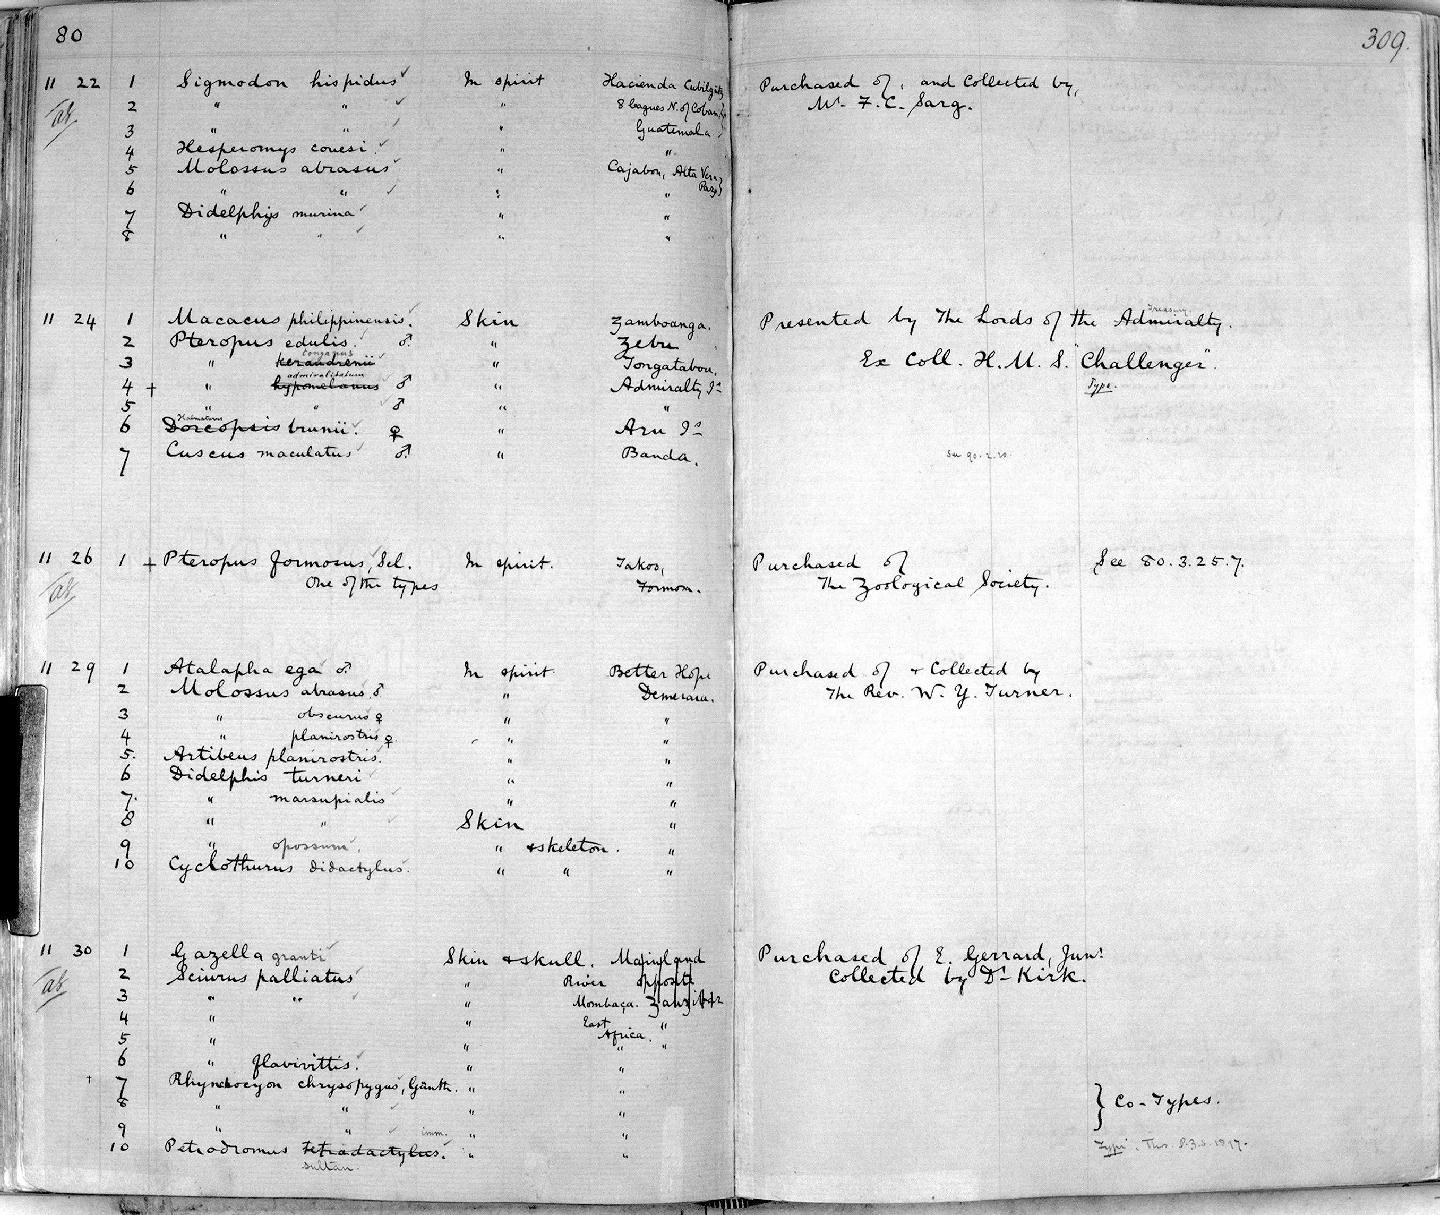 80
309.
11 22 1 Sigmodon hispidus In spirit Hacienda Cubilguitz Purchased of, and Collected by,
al 2 " " " 8 leagues N. of Coban Mr. F. C. Sarg.
3 " " " Guatemala
4 Hesperomys couesi " "
5 Molossus abrasus " Cajabon, Alta Vera
6 " " " Paz "
7 Didelphys murina " "
8 " " " "
11 24 1 Macacus philippinensis. Skin Zamboanga. Presented by The Lords of the Admiralty.
Treasury
2 Pteropus edulis. ♂. " Zebu
tonganus
3 " keraudrenii " Tongatabou. Ex Coll. H. M. S. "Challenger".
admiralitatum
4 + " hypomelanus ♂ " Admiralty Is Type.
5 " " ♂ " "
Halmaturus
6 Dorcopsis brunii. ♀ " Aru Is
7 Cuscus maculatus ♂. " Banda.
11 26 1 + Pteropus formosus, Scl. In spirit. Takos, Purchased of See 80.3.25.7.
al One of the types Formosa. The Zoological Society.
11 29 1 Atalapha ega ♂. In spirit Better Hope Purchased of + Collected by
2 Molossus abrasus ♂ " Demerara. The Rev. W. Y. Turner.
3 " obscurus ♀ " "
4 " planirostris ♀ " "
5. Artibeus planirostris. " "
6 Didelphis turneri " "
7. " marsupialis " "
8 " " Skin "
9 " opossum. " + skeleton. "
10 Cyclothurus didactylus. " " "
11 30 1 Gazella granti Skin + skull. Mainland Purchased of E. Gerrard, Junr
al 2 Sciurus palliatus " River opposite Collected by Dr Kirk.
3 " " " Mombaça. Zanzibar
4 " " East "
5 " " Africa. "
6 " flavivittis. " "
7 Rhynchocyon chrysopygus, Günth. " "
8 " " " " } Co-Types.
9 " " imm. " "
10 Petrodromus tetradactylus. " " Type. Thos. P.Z.S. 1897.
sultan